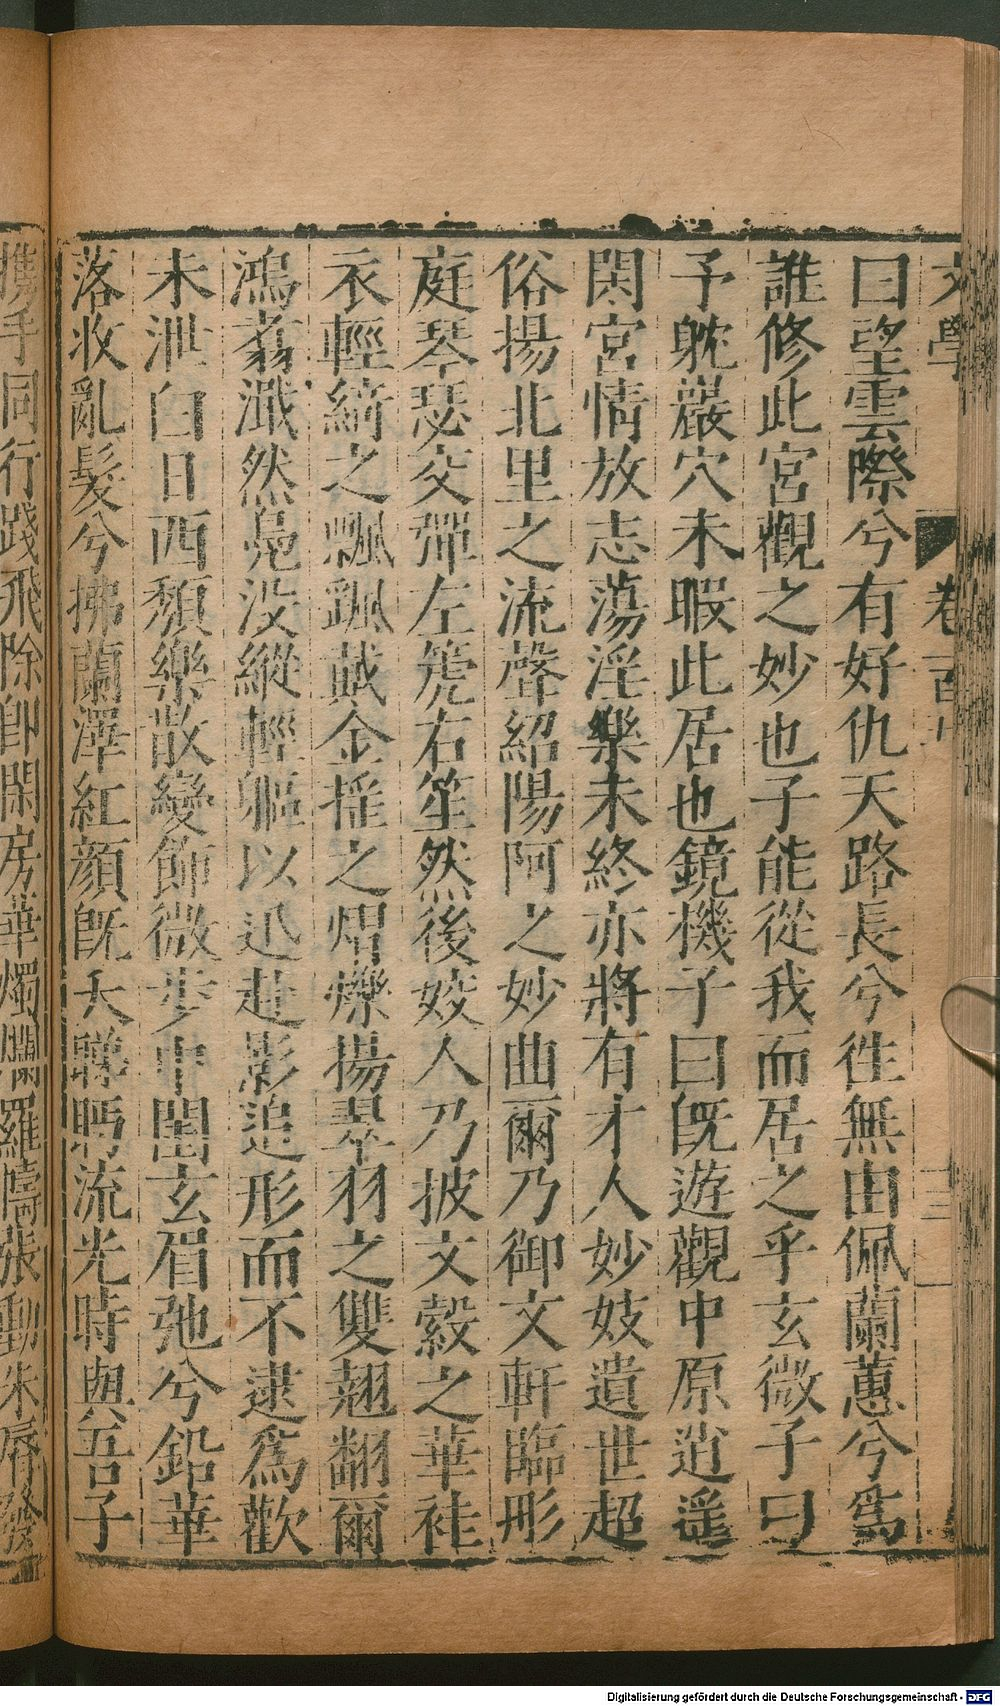 文學
卷一百
三
曰望雲際兮有好仇天路長兮徃無由佩蘭蕙兮爲
誰修此宮觀之妙也子能從我而居之乎玄微子曰
予躭巖穴未暇此居也鏡機子曰旣遊觀中原逍遥
閑宮情放志蕩淫樂未終亦將有才人妙妓遺世超
俗揚北里之流聲紹陽阿之妙曲爾乃御文軒臨彤
庭琴瑟交彈左篪右笙然後姣人乃披文縠之華袿
衣輕綺之飄颻戴金揺之熠爍揚翠羽之雙翹翻爾
鴻翥濈然鳧没縱輕軀以迅赴影追形而不逮爲歡
未泄白日西頹樂散變飾微步中閨玄眉弛兮鉛華
落收亂髮兮拂蘭澤紅顔旣夭睇眄流光時與吾子
擕手同行踐飛除卽閑房華燭爛羅幬張動朱脣發
Digitalisierung gefördert durch die Deutsche Forschungsgemeinschaft - DFG